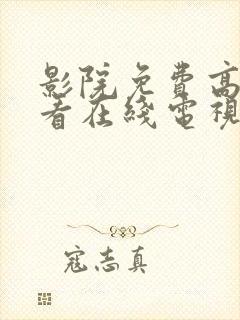 影院免費高
看在綫電視
寇志真